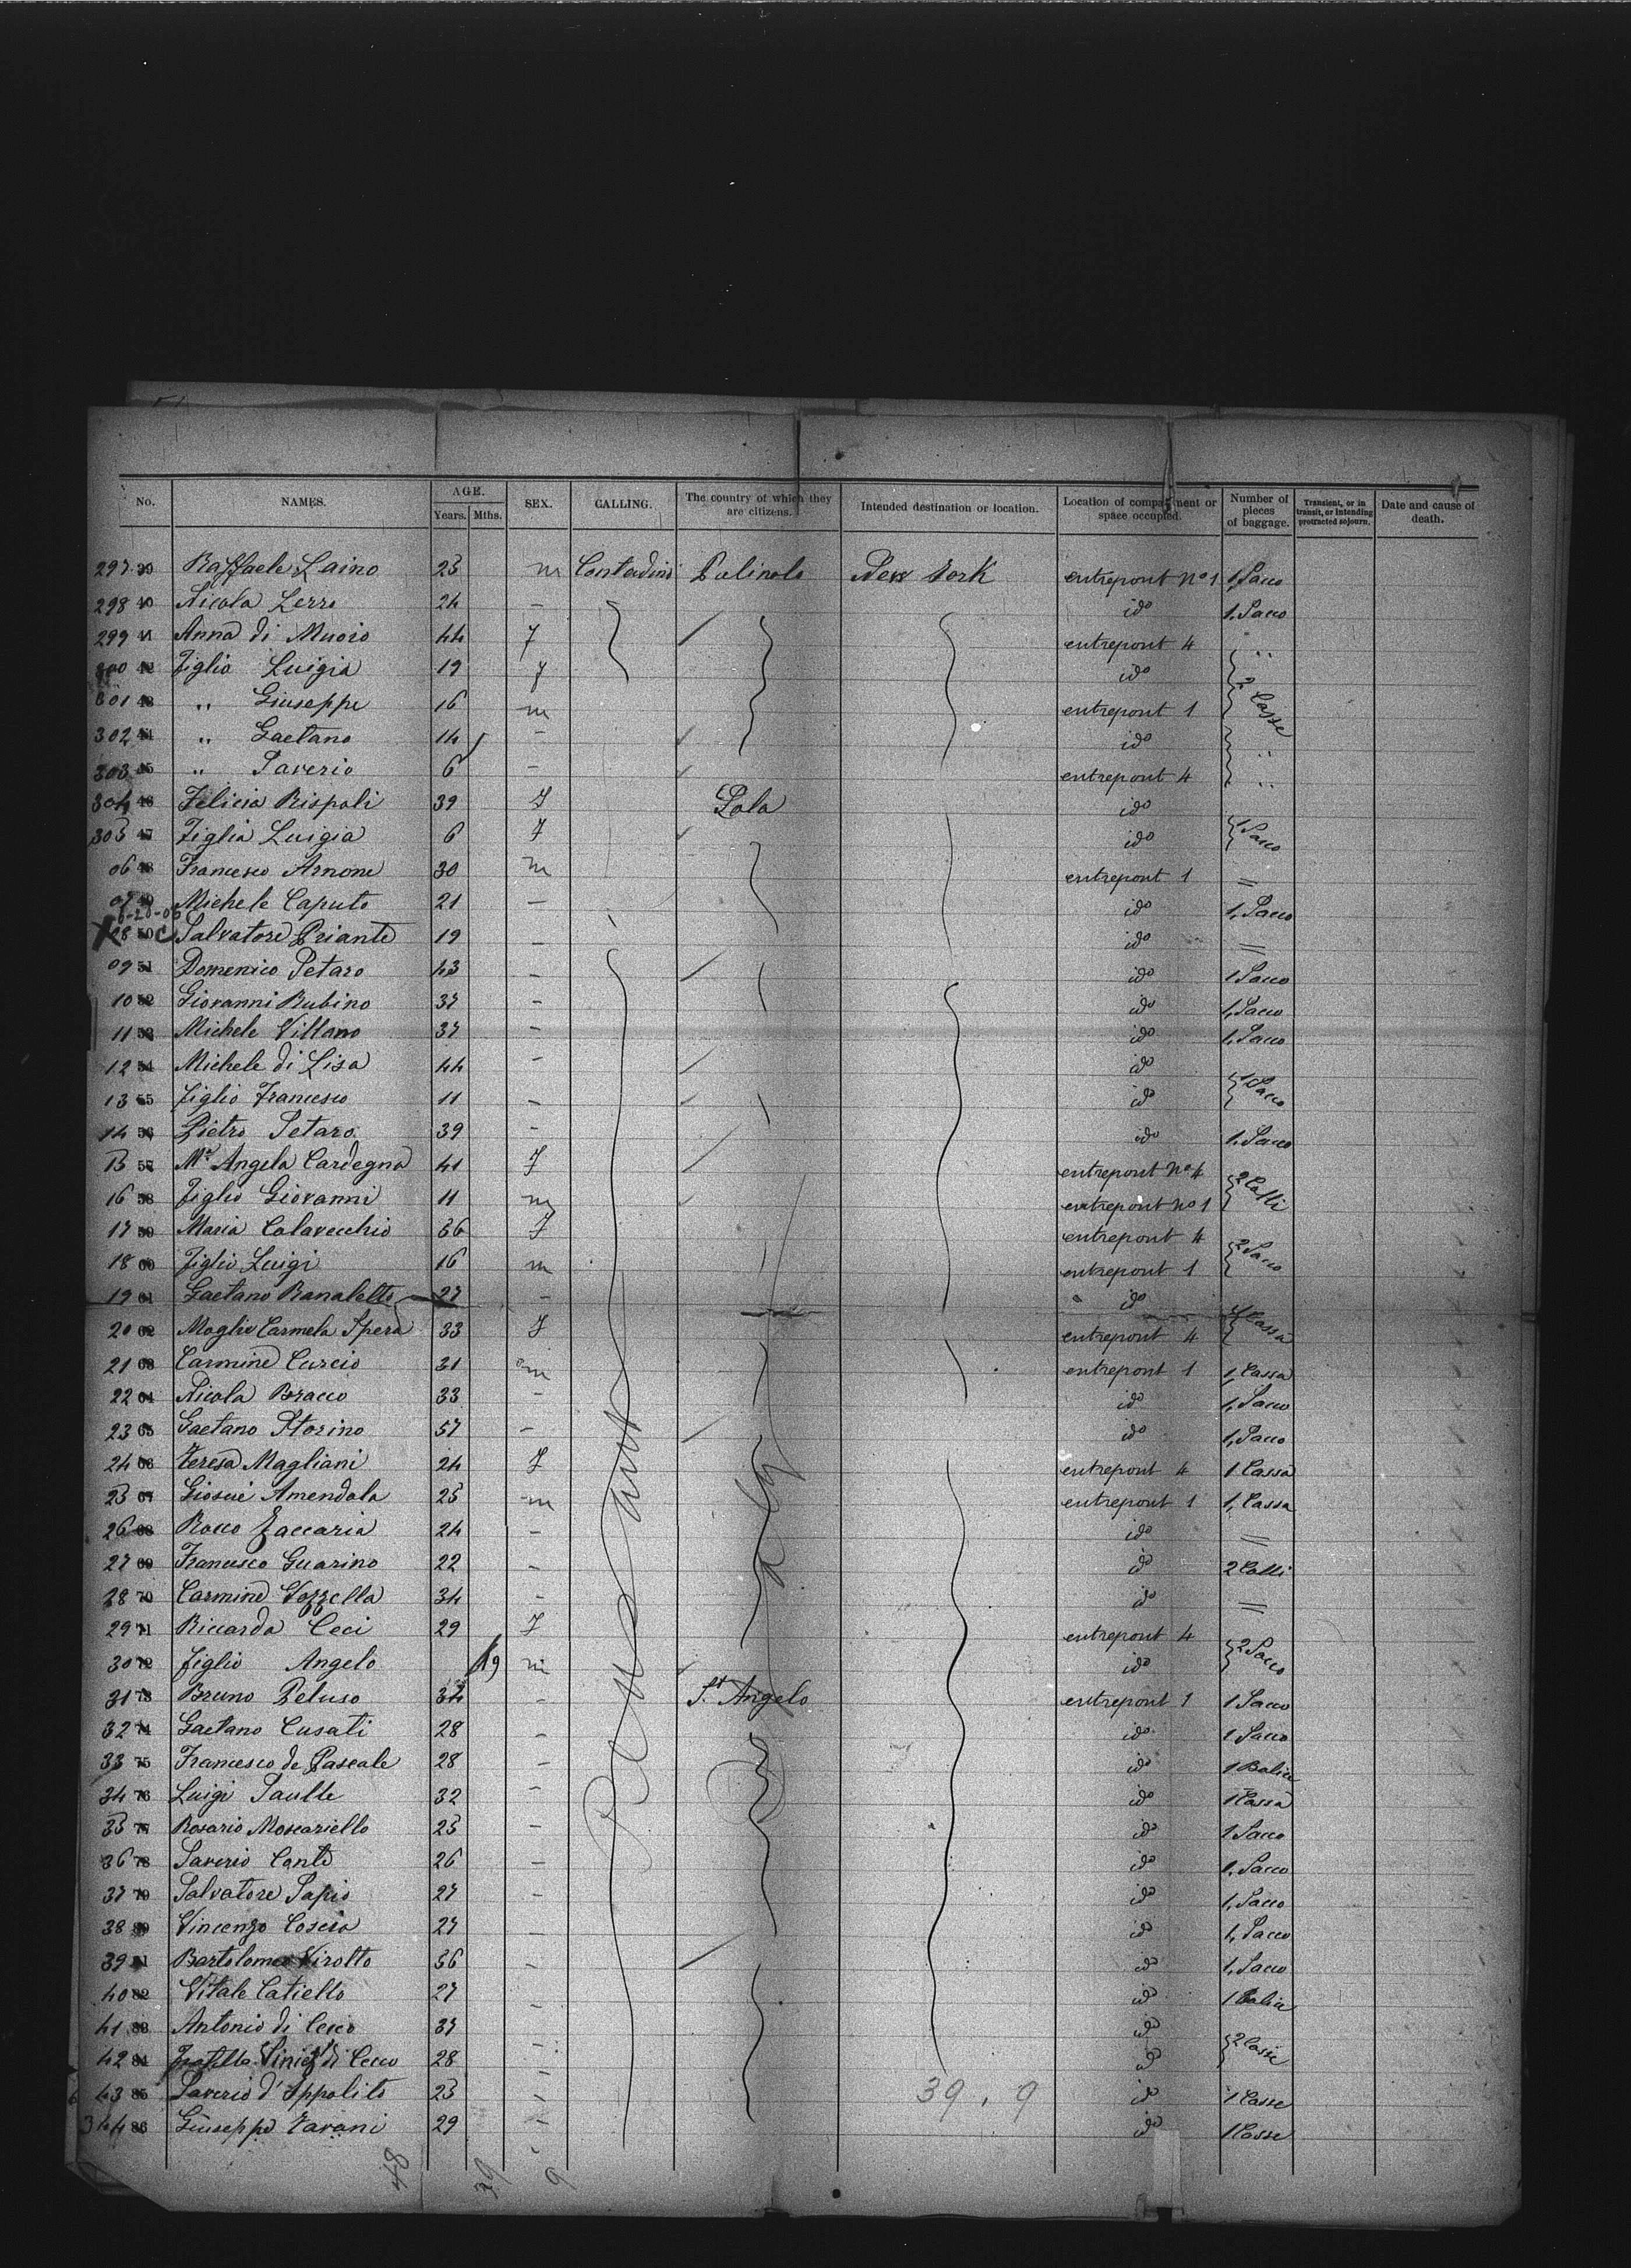 No. NAMES. AGE. Years. Mths. SEX. CALLING. The country of which they are citizens. Intended destination or location. Location of compartment or space occupied. Number of pieces of baggage. Transient, or in transit, or intending protracted sojourn. Date and cause of death.
297 39 Raffaele Laino 25 m Contadini New York entrepont No 1 1 Sacco
298 40 Nicola Lerro 24 - ido 1 Sacco
299 41 Anna di Muoio 44 f entrepont 4 "
300 42 Figlia Luigia 19 f ido
301 43 " Giuseppe 16 m entrepont 1 2 Casse
302 44 " Gaetano 14 - ido "
303 45 " Saverio 6 - entrepont 4 "
304 46 Felicia Rispoli 39 f ido
305 47 Figlia Luigia 6 f ido 1 Sacco
06 48 Francesco Arnone 30 m entrepont 1 =
07 49 Michele Caputo 21 - ido 1 Sacco
6-20-06
X 08 50 C Salvatore Priante 19 - ido =
09 51 Domenico Petaro 43 - ido 1 Sacco
10 52 Giovanni Rubino 37 - ido 1 Sacco
11 53 Michele Villano 37 - ido 1 Sacco
12 54 Michele di Lisa 44 - ido
13 55 figlio Francesco 11 - ido 1 Sacco
14 56 Pietro Setaro 39 - ido 1 Sacco
15 57 Ma Angela Cardegna 41 f entrepont No 4 2 Colli
16 58 figlio Giovanni 11 m entrepont no 1
17 59 Maria Colavecchio 56 f entrepont 4
18 60 figlio Luigi 16 m entrepont 1 2 Sacco
19 61 Gaetano 27 - ido
20 62 Moglie Carmela Spera 33 f entrepont 4 1 Cassa
21 63 Carmine Curcio 31 m entrepont 1 1 Cassa
22 64 Nicola Bracco 33 - ido 1 Sacco
23 65 Gaetano Storino 57 - ido 1 Sacco
24 66 Teresa Magliani 24 f entrepont 4 1 Cassa
25 67 Giosuè Amendola 25 m entrepont 1 1 Cassa
26 68 Rocco Zaccaria 24 - ido =
27 69 Francesco Guarino 22 - ido 2 Colli
28 70 Carmine Vozzella 34 - ido =
29 71 Riccarda Ceci 29 f entrepont 4
30 72 figlio Angelo 19 m ido 2 Sacco
31 73 Bruno Peluso 34 - St Angelo entrepont 1 1 Sacco
32 74 Gaetano Cusati 28 - ido 1 Sacco
33 75 Francesco de Pascale 28 - ido 1 Balice
34 76 Luigi 32 - ido 1 Cassa
35 77 Rosario Moscariello 25 - ido 1 Sacco
36 78 Saverio Conte 26 - ido 1 Sacco
37 79 Salvatore Sapio 27 - ido 1 Sacco
38 80 Vincenzo Coscia 27 - ido 1 Sacco
39 81 Bartolomeo Virotto 56 - ido 1 Sacco
40 82 Vitale Catiello 27 - ido 1 Balice
41 83 Antonio di Cecco 37 - ido
42 84 Fratello di Cecco 28 - ido 2 Casse
43 85 Saverio d'Ippolito 23 - ido 1 Casse
344 86 Giuseppe Tavani 29 - ido 1 Casse
39 . 9
48 39 9